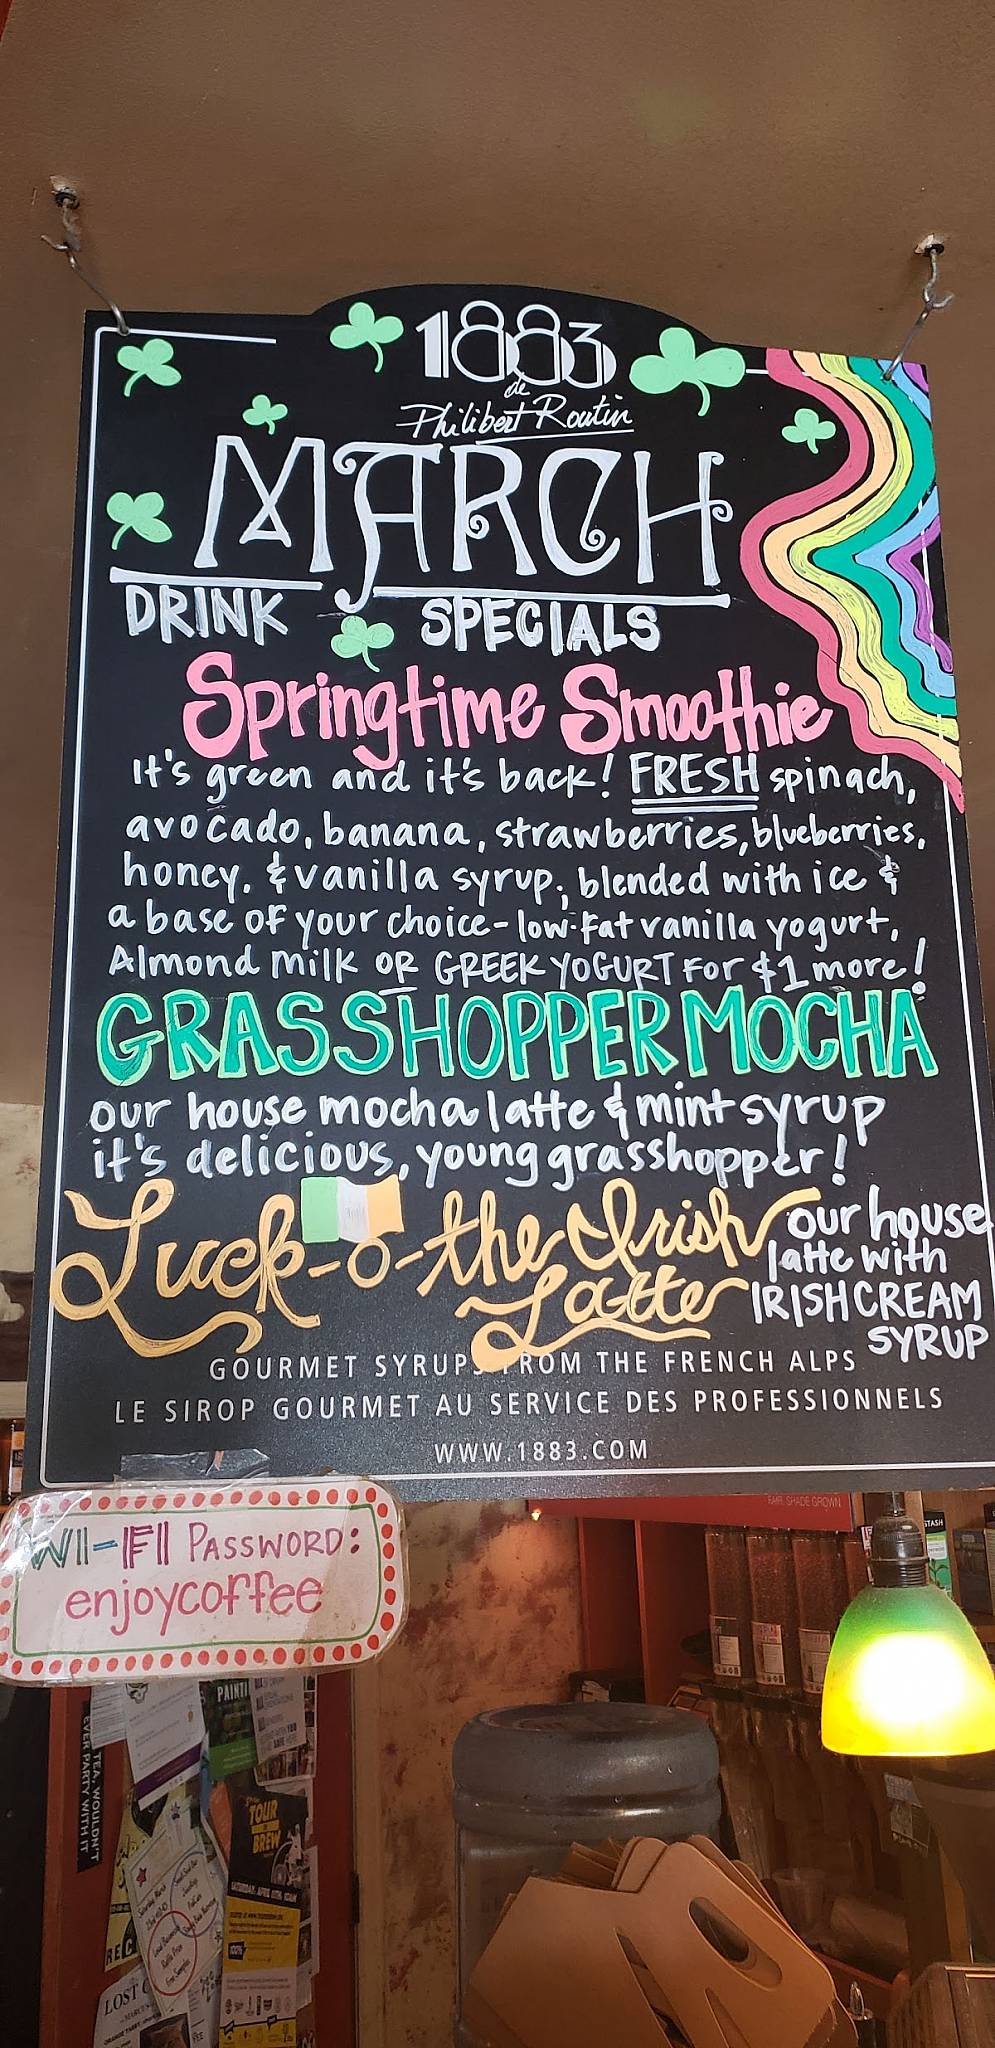 1883
de
Philibert Routin
MARCH
DRINK SPECIALS
Springtime Smoothie
It's green and it's back! FRESH spinach,
avocado, banana, strawberries, blueberries,
honey, & vanilla syrup; blended with ice &
a base of your choice - low-fat vanilla yogurt,
Almond milk OR GREEK YOGURT For $1 more!
GRASSHOPPER MOCHA
our house mocha latte & mint syrup
it's delicious, young grasshopper!
Luck-o-the Irish Latte
our house
latte with
IRISH CREAM
SYRUP
GOURMET SYRUPS FROM THE FRENCH ALPS
LE SIROP GOURMET AU SERVICE DES PROFESSIONNELS
WWW.1883.COM
WI-FI PASSWORD:
enjoycoffee
FAIR. SHADE GROWN
STASH
PAINTI
TEA, WOULDN'T
EVER PARTY WITH IT
TOUR
BREW
SATURDAY, APRIL 11TH, 10AM
REC
LOST